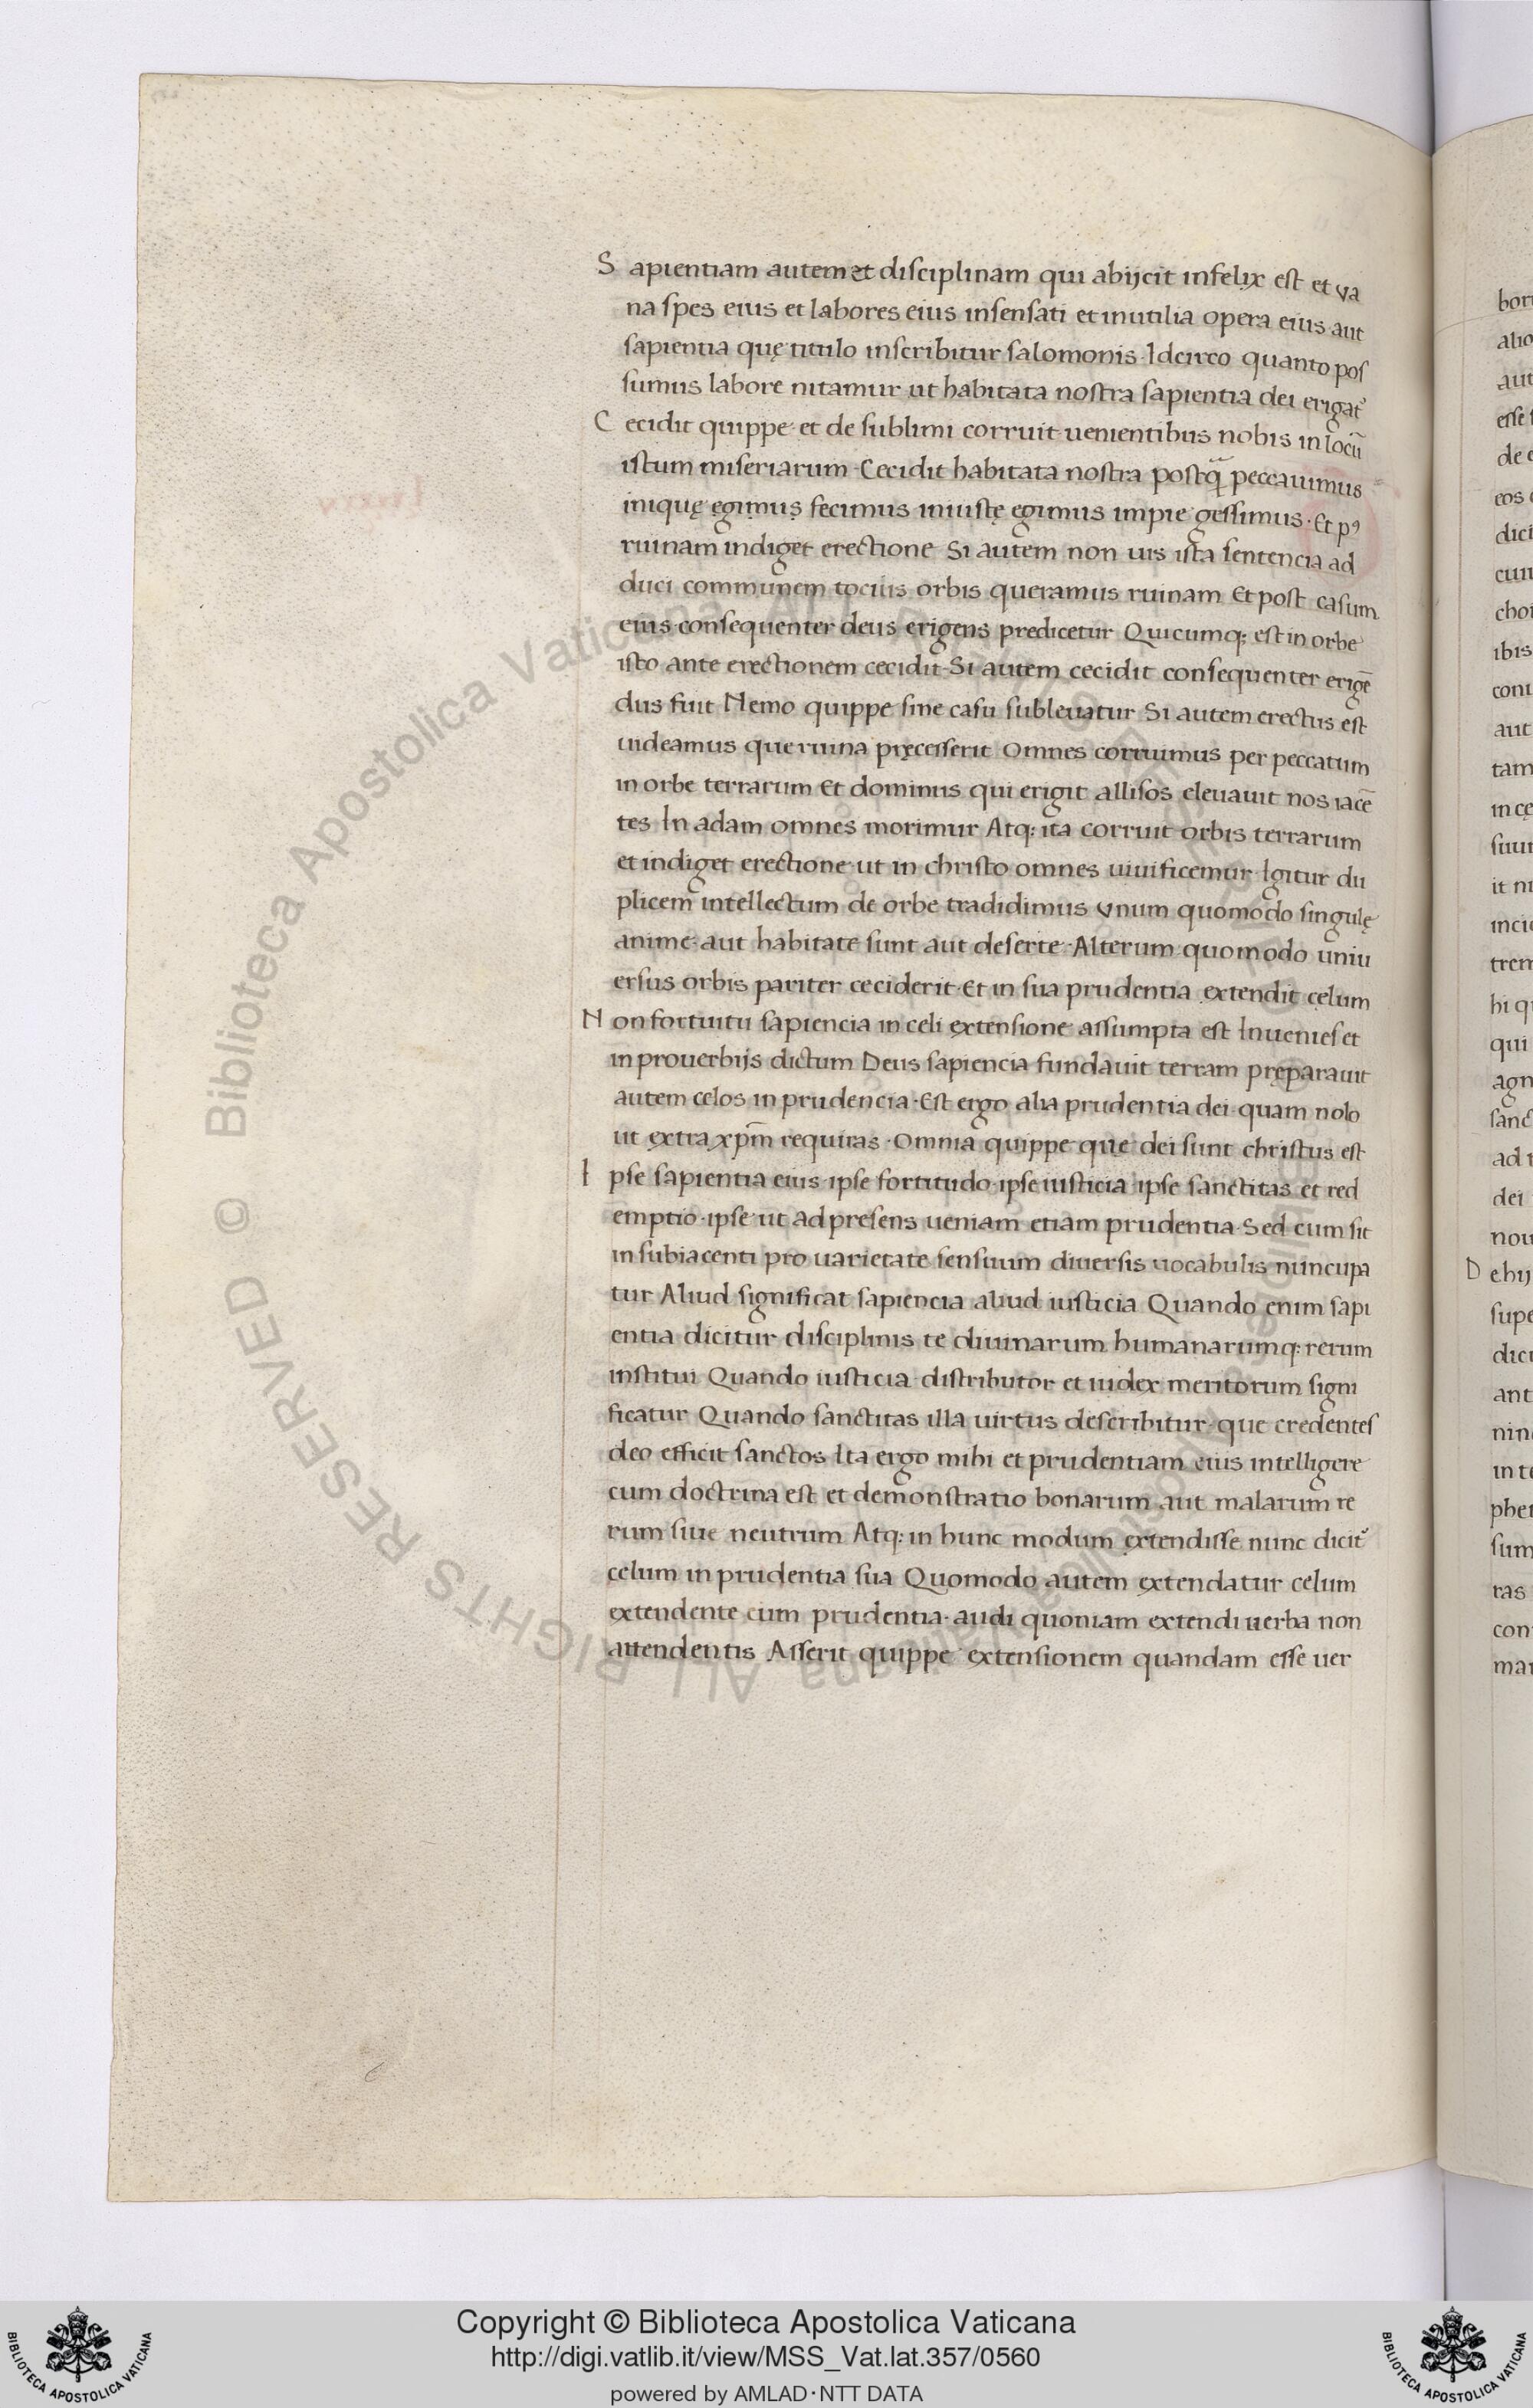 Sapientiam autem et disciplinam qui abijcit infelix est et va
na spes eius et labores eius insensati et inutilia opera eius aut
sapientia quę titulo inscribitur salomonis· Idcirco quanto pos
sumus labore nitamur ut habitata nostra sapientia dei erigat᷑
Cecidit quippe et de sublimi corruit uenientibus nobis in locū
istum miseriarum· Cecidit habitata nostra postq̄ peccauimus
iniquę egimus fecimus iniustę egimus impie gessimus· Et pꝰ
ruinam indiget erectione Si autem non uis ista sentencia ad
duci communem tocius orbis queramus ruinam Et post casum
eius consequenter deus erigens predicetur Quicumq: est in orbe
isto ante erectionem cecidit Si autem cecidit consequenter erigē
dus fuit Nemo quippe sine casu subleuatur Si autem erectus est
uideamus que ruina pręcesserit Omnes corruimus per peccatum
in orbe terrarum Et dominus qui erigit allisos eleuauit nos iacē
tes In adam omnes morimur Atq: ita corruit orbis terrarum
et indiget erectione ut in christo omnes uiuificemur Igitur du
plicem intellectum de orbe tradidimus vnum quomodo singulę
anime aut habitate sunt aut deserte· Alterum quomodo uniu
ersus orbis pariter ceciderit· Et in sua prudentia extendit celum
Non fortuitu sapiencia in celi extensione assumpta est Inuenies et
in prouerbijs dictum Deus sapiencia fundauit terram pręparauit
autem celos in prudencia· Est ergo alia prudentia dei quam nolo
ut extra xp̄m requiras· Omnia quippe quę dei sunt christus est
Ipse sapientia eius ipse fortitudo· ipse iusticia ipse sanctitas et red
emptio· ipse ut ad presens ueniam etiam prudentia· Sed cum sit
in subiacenti pro uarietate sensuum diuersis uocabulis nuncupa
tur Aliud significat sapiencia aliud iusticia Quando enim sapi
entia dicitur disciplinis te diuinarum humanarumq: rerum
institui Quando iusticia distributor et iudex meritorum signi
ficatur Quando sanctitas illa uirtus describitur que credentes
deo efficit sanctos Ita ergo mihi et prudentiam eius intelligere
cum doctrina est et demonstratio bonarum aut malarum re
rum siue neutrum Atq: in hunc modum extendisse nunc dicit᷑
celum in prudentia sua Quomodo autem extendatur celum
extendente eum prudentia· audi quoniam extendi uerba non
attendentis Asserit quippe extensionem quandam esse uer
Copyright © Biblioteca Apostolica Vaticana
http://digi.vatlib.it/view/MSS_Vat.lat.357/0560
powered by AMLAD·NTT DATA
BIBLIOTECA APOSTOLICA VATICANA
BIBLIOTECA APOSTOLICA VATICANA